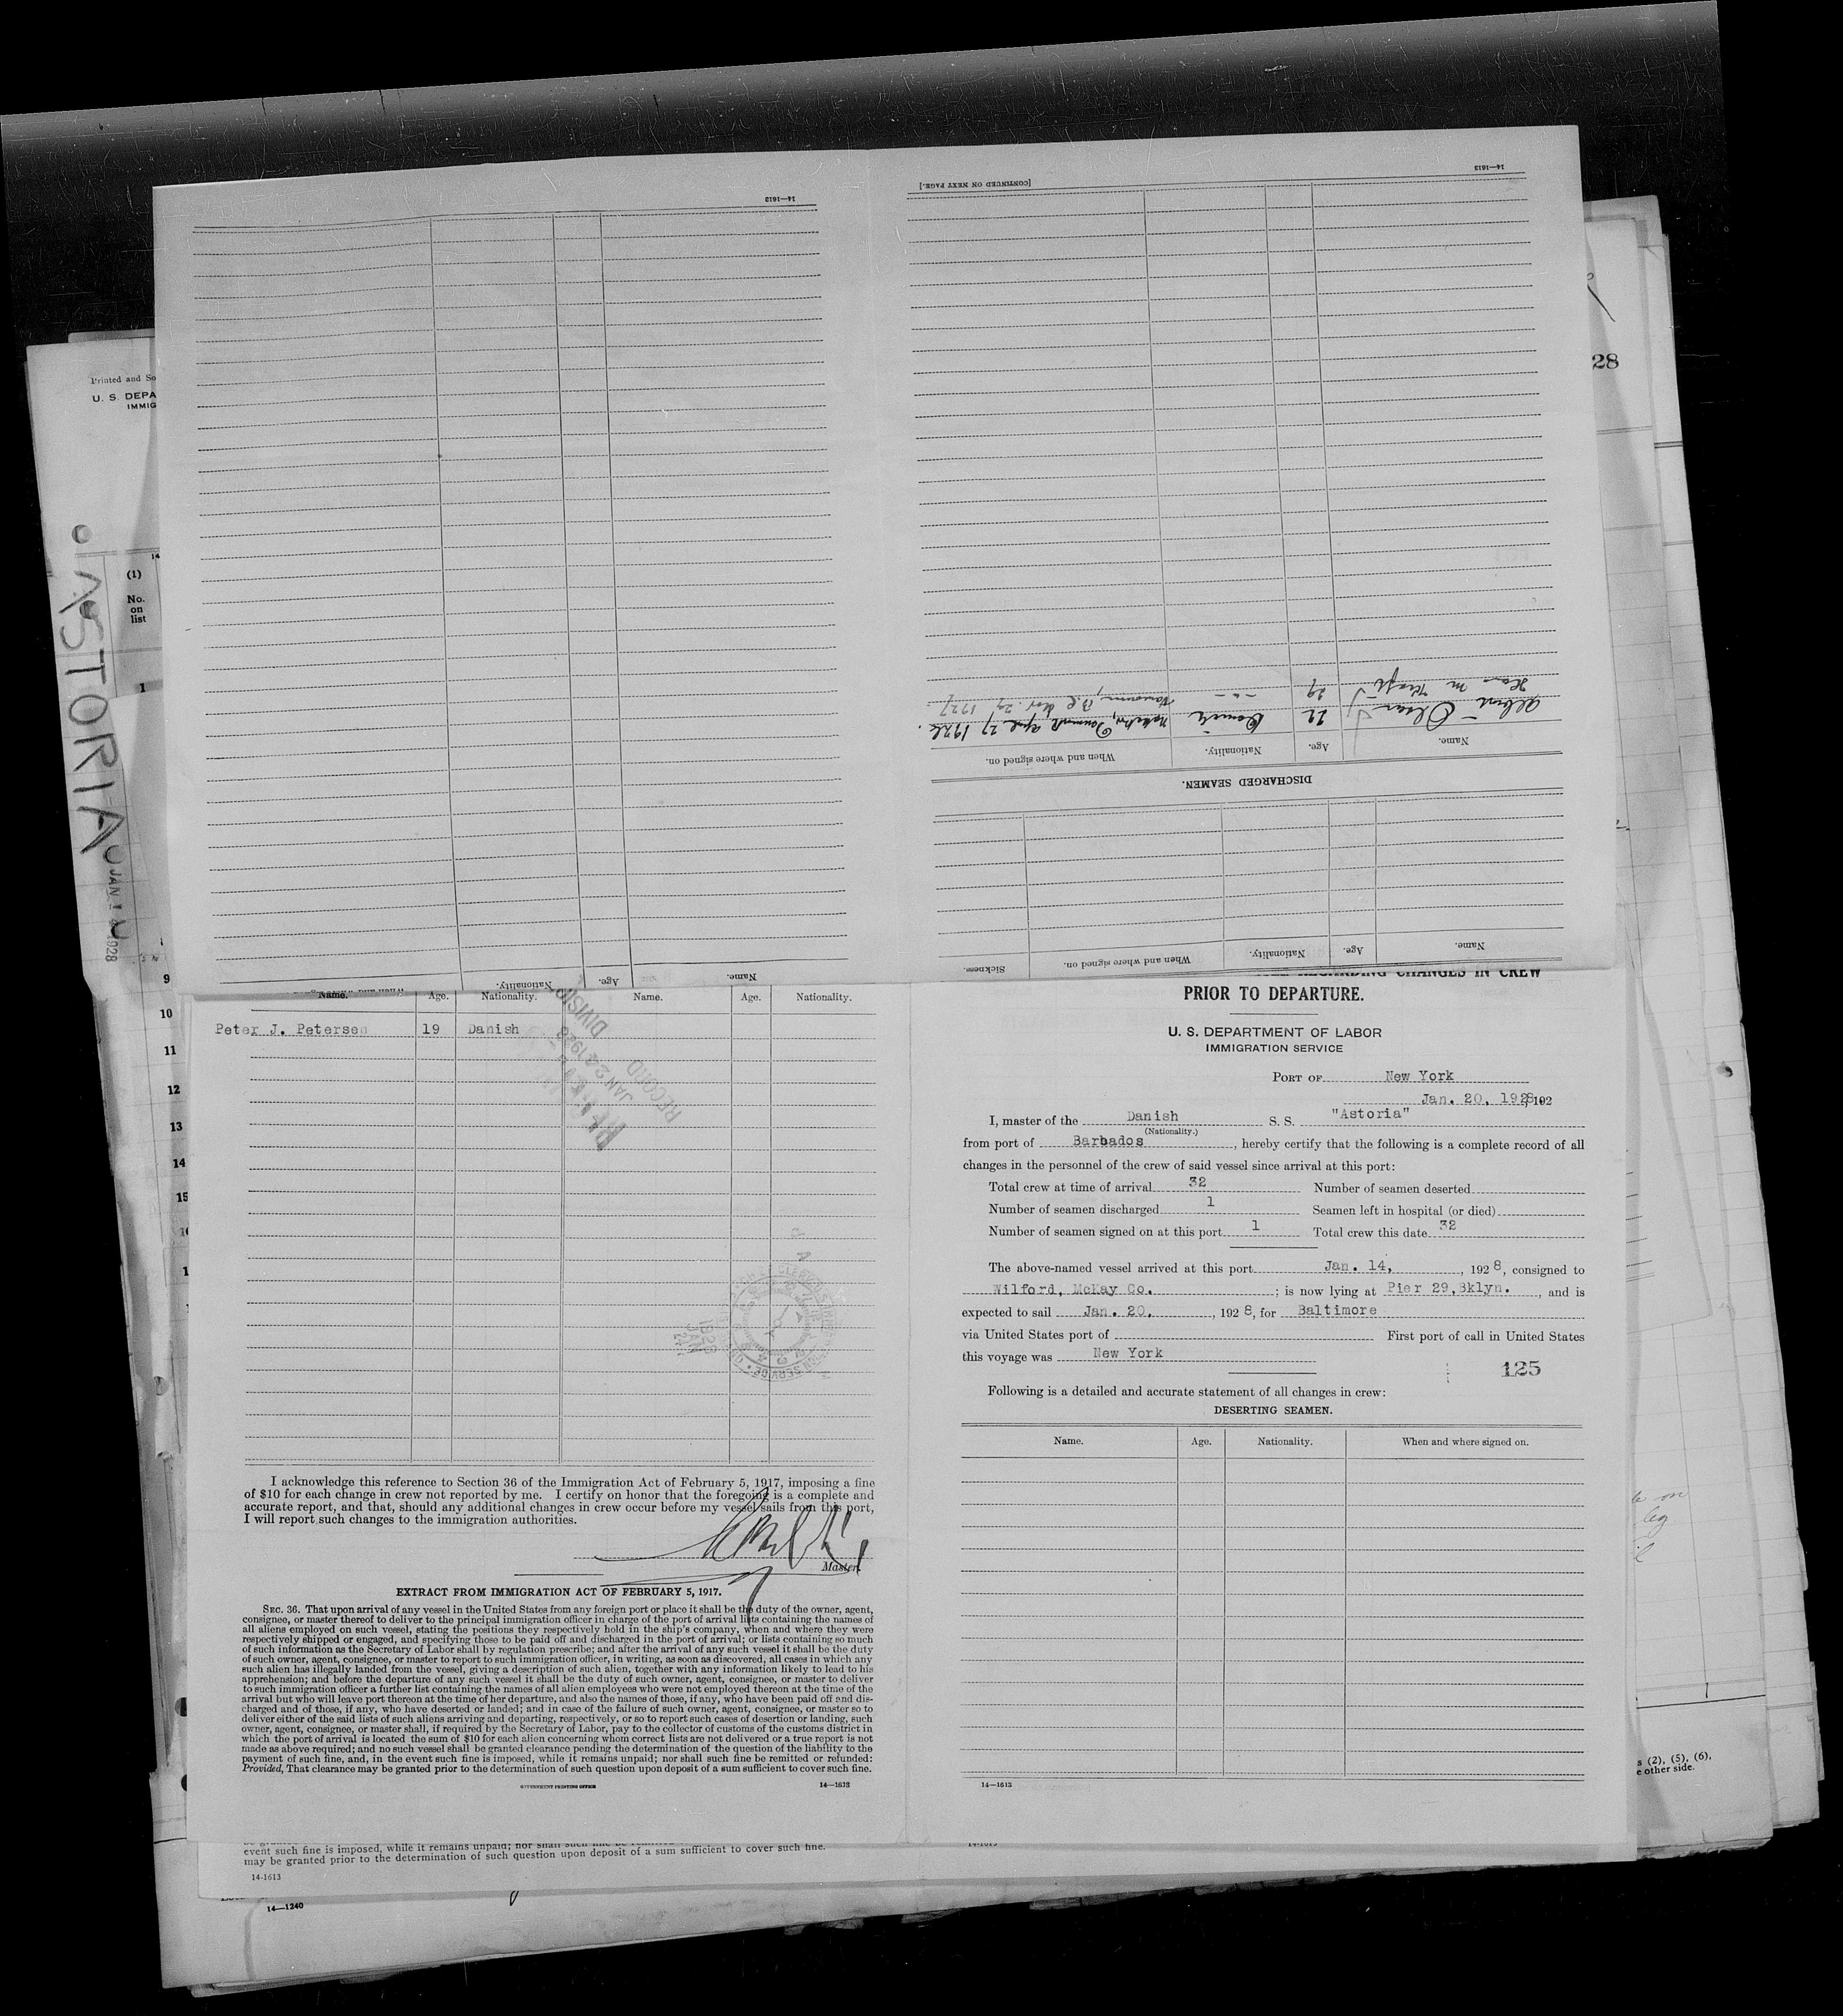 14—1613
14—1613
[CONTINUED ON NEXT PAGE.]
28
Printed and So
U. S. DEPA
IMMIG
14
(1)
No.
on
list
1
ASTORIA
JAN 1 4 1928
9
10
11
12
13
14
15
Name. Age. Nationality. When and where signed on.
Albert Olsen 22 Danish Denmark April 27 1926.
29 -"- Vancouver, B.C. Nov. 29 1927
DISCHARGED SEAMEN.
Name. Age. Nationality. When and where signed on. Sickness.
Name. Age. Nationality.
Name. Age. Nationality. Name. Age. Nationality.
Peter J. Petersen 19 Danish
RECORD
JAN 22 1928
DIVISIO
1928
JAN
I acknowledge this reference to Section 36 of the Immigration Act of February 5, 1917, imposing a fine
of $10 for each change in crew not reported by me. I certify on honor that the foregoing is a complete and
accurate report, and that, should any additional changes in crew occur before my vessel sails from this port,
I will report such changes to the immigration authorities.
Master.
EXTRACT FROM IMMIGRATION ACT OF FEBRUARY 5, 1917.
SEC. 36. That upon arrival of any vessel in the United States from any foreign port or place it shall be the duty of the owner, agent,
consignee, or master thereof to deliver to the principal immigration officer in charge of the port of arrival lists containing the names of
all aliens employed on such vessel, stating the positions they respectively hold in the ship's company, when and where they were
respectively shipped or engaged, and specifying those to be paid off and discharged in the port of arrival; or lists containing so much
of such information as the Secretary of Labor shall by regulation prescribe; and after the arrival of any such vessel it shall be the duty
of such owner, agent, consignee, or master to report to such immigration officer, in writing, as soon as discovered, all cases in which any
such alien has illegally landed from the vessel, giving a description of such alien, together with any information likely to lead to his
apprehension; and before the departure of any such vessel it shall be the duty of such owner, agent, consignee, or master to deliver
to such immigration officer a further list containing the names of all alien employees who were not employed thereon at the time of the
arrival but who will leave port thereon at the time of her departure, and also the names of those, if any, who have been paid off and dis-
charged and of those, if any, who have deserted or landed; and in case of the failure of such owner, agent, consignee, or master so to
deliver either of the said lists of such aliens arriving and departing, respectively, or so to report such cases of desertion or landing, such
owner, agent, consignee, or master shall, if required by the Secretary of Labor, pay to the collector of customs of the customs district in
which the port of arrival is located the sum of $10 for each alien concerning whom correct lists are not delivered or a true report is not
made as above required; and no such vessel shall be granted clearance pending the determination of the question of the liability to the
payment of such fine, and, in the event such fine is imposed, while it remains unpaid; nor shall such fine be remitted or refunded:
Provided, That clearance may be granted prior to the determination of such question upon deposit of a sum sufficient to cover such fine.
GOVERNMENT PRINTING OFFICE 14—1613
REGARDING CHANGES IN CREW
PRIOR TO DEPARTURE.
U. S. DEPARTMENT OF LABOR
IMMIGRATION SERVICE
PORT OF New York
Jan. 20, 1928, 192
I, master of the Danish S. S. "Astoria"
(Nationality.)
from port of Barbados, hereby certify that the following is a complete record of all
changes in the personnel of the crew of said vessel since arrival at this port:
Total crew at time of arrival 32 Number of seamen deserted
Number of seamen discharged 1 Seamen left in hospital (or died)
Number of seamen signed on at this port 1 Total crew this date 32
The above-named vessel arrived at this port Jan. 14, , 1928, consigned to
Wilford, McKay Co. ; is now lying at Pier 29, Bklyn. , and is
expected to sail Jan. 20, , 1928, for Baltimore
via United States port of First port of call in United States
this voyage was New York
125
Following is a detailed and accurate statement of all changes in crew:
DESERTING SEAMEN.
Name. Age. Nationality. When and where signed on.
14—1613
s (2), (5), (6),
e other side.
event such fine is imposed, while it remains unpaid; nor shall such fine be
may be granted prior to the determination of such question upon deposit of a sum sufficient to cover such fine.
14-1613
14-1613
14—1240